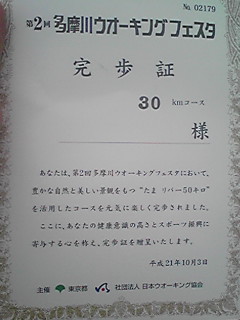 No. 02179
第2回 多摩川ウオーキングフェスタ
完歩証
30 kmコース
様
あなたは、第2回多摩川ウオーキングフェスタにおいて、
豊かな自然と美しい景観をもつ"たま リバー50キロ"
を活用したコースを元気に楽しく完歩されました。
ここに、あなたの健康意識の高さとスポーツ振興に
寄与する心を称え、完歩証を贈呈いたします。
平成21年10月3日
主催 東京都 社団法人 日本ウオーキング協会